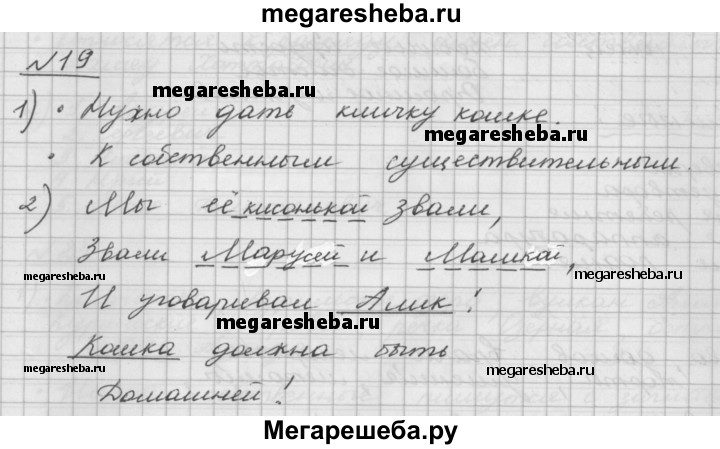 megaresheba.ru
№19
megaresheba.ru
1) • Нужно дать кличку кошке.
megaresheba.ru
• К собственным существительным.
2) Мы её кисонькой звали,
Звали Марусей и Машкой,
megaresheba.ru
megaresheba.ru
И уговаривал Алик!
megaresheba.ru
Кошка должна быть
megaresheba.ru
megaresheba.ru
Домашней!
Мегарешеба.ру